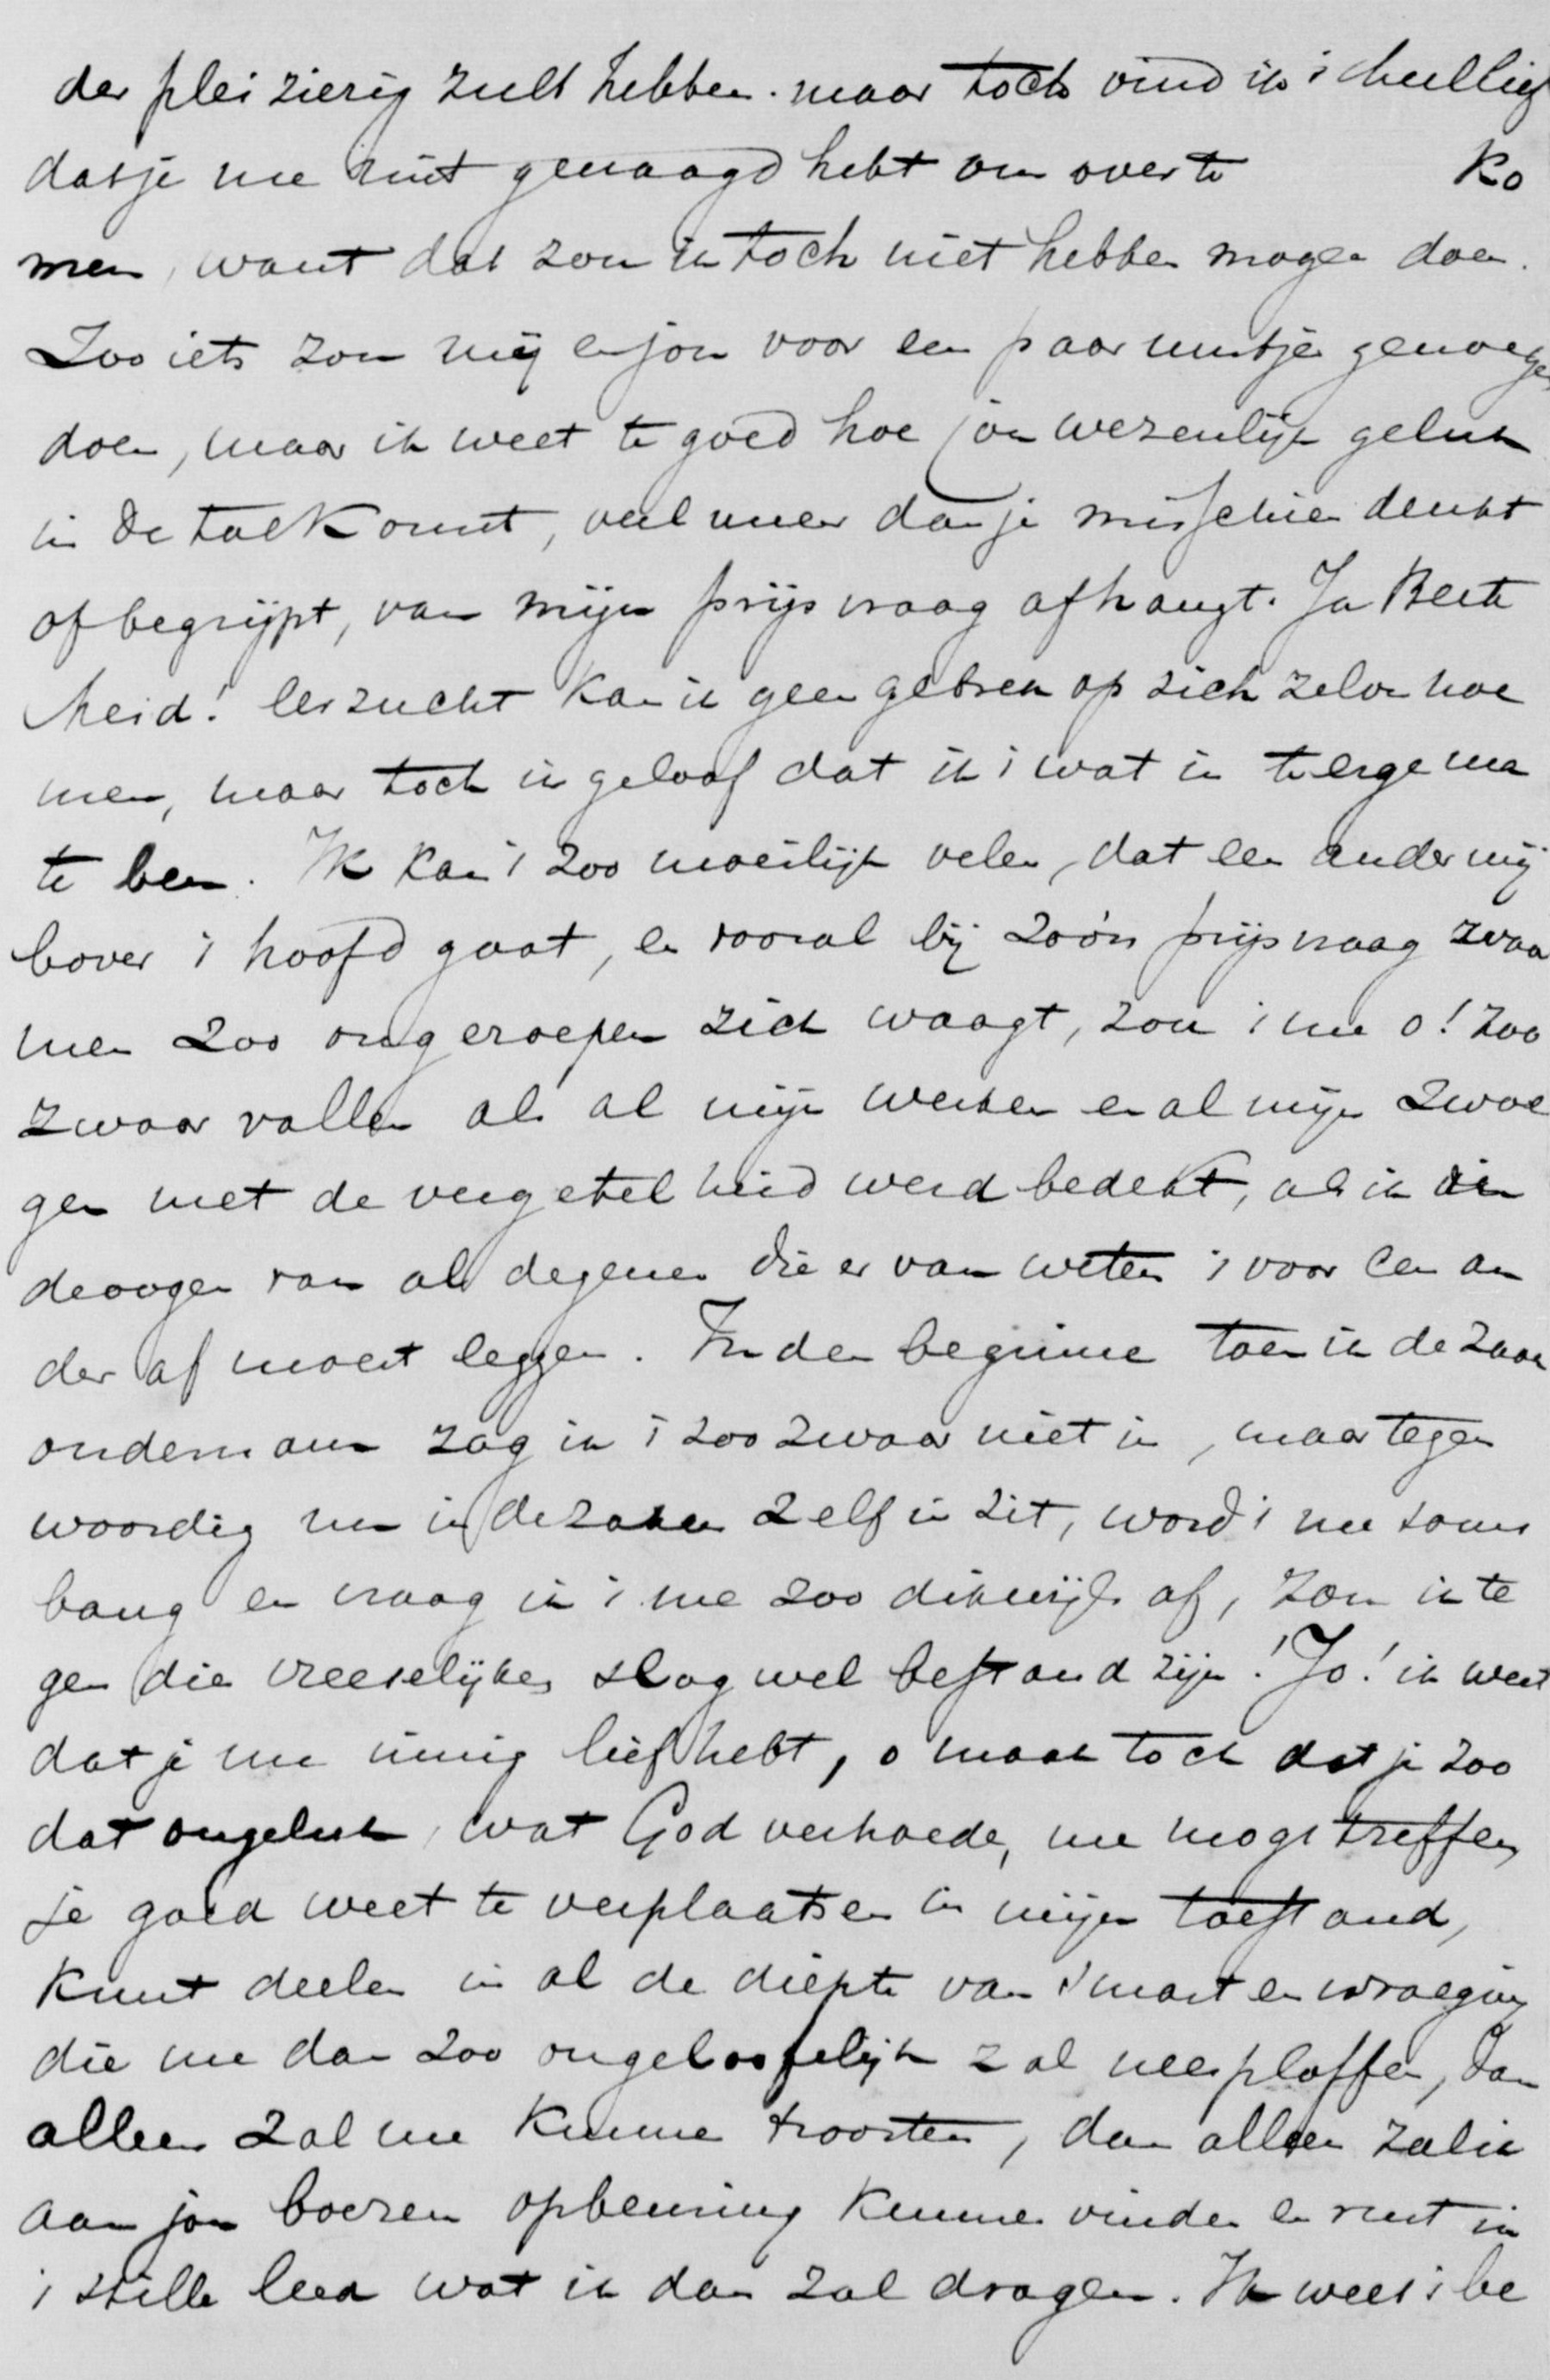 der pleizierig zult hebben. maar toch vind ik 't heel lief
dat je me niet gevraagd hebt om over te ko
men, want dat zou ik toch niet hebben mogen doen.
Zoo iets zou mij en jou voor een paar uurtjes genoegen
doen, maar ik weet te goed hoe jou wezenlijk geluk
in de toekomst, veel meer dan je misschien denkt
of begrijpt, van mijn prijsvraag afhangt. Ja Beste
meid! Eerzucht kan ik geen gebrek op zich zelve noe
men, maar toch ik geloof dat ik 't wat in te erge ma
te ben. Ik kan 't zoo moeilijk velen, dat een ander mij
boven 't hoofd gaat, en vooral bij zoo'n prijsvraag waa
men zoo ongeroepen zich waagt, zou 't me o! zoo
zwaar vallen als al mijn werken en al mijn zwoe
gen met de vergetelheid werd bedekt, als ik in
de oogen van al degenen die er van weten 't voor een an
der af moest leggen. In den beginne toen ik de zaak
ondernam zag ik 't zoo zwaar niet in, maar tegen
woordig nu ik in de zaken zelf in zit, word 't me soms
bang en vraag ik 't me zoo dikwijls af, zou ik te
gen die vreeselijken slag wel bestand zijn! Jo! ik weet
dat je me innig lief hebt, o maak toch dat je zoo
dat ongeluk, wat God verhoede, me mogt treffen,
je goed weet te verplaatsen in mijn toestand,
kunt deelen in al de diepte van smart en wroeging
die me dan zoo ongelooflijk zal neerploffen, dan
alleen zal me kunnen troosten, dan alleen zal ik
aan jou boezem opbeuring kunnen vinden en rust in
't stille leed wat ik dan zal dragen. Ik weet 't be